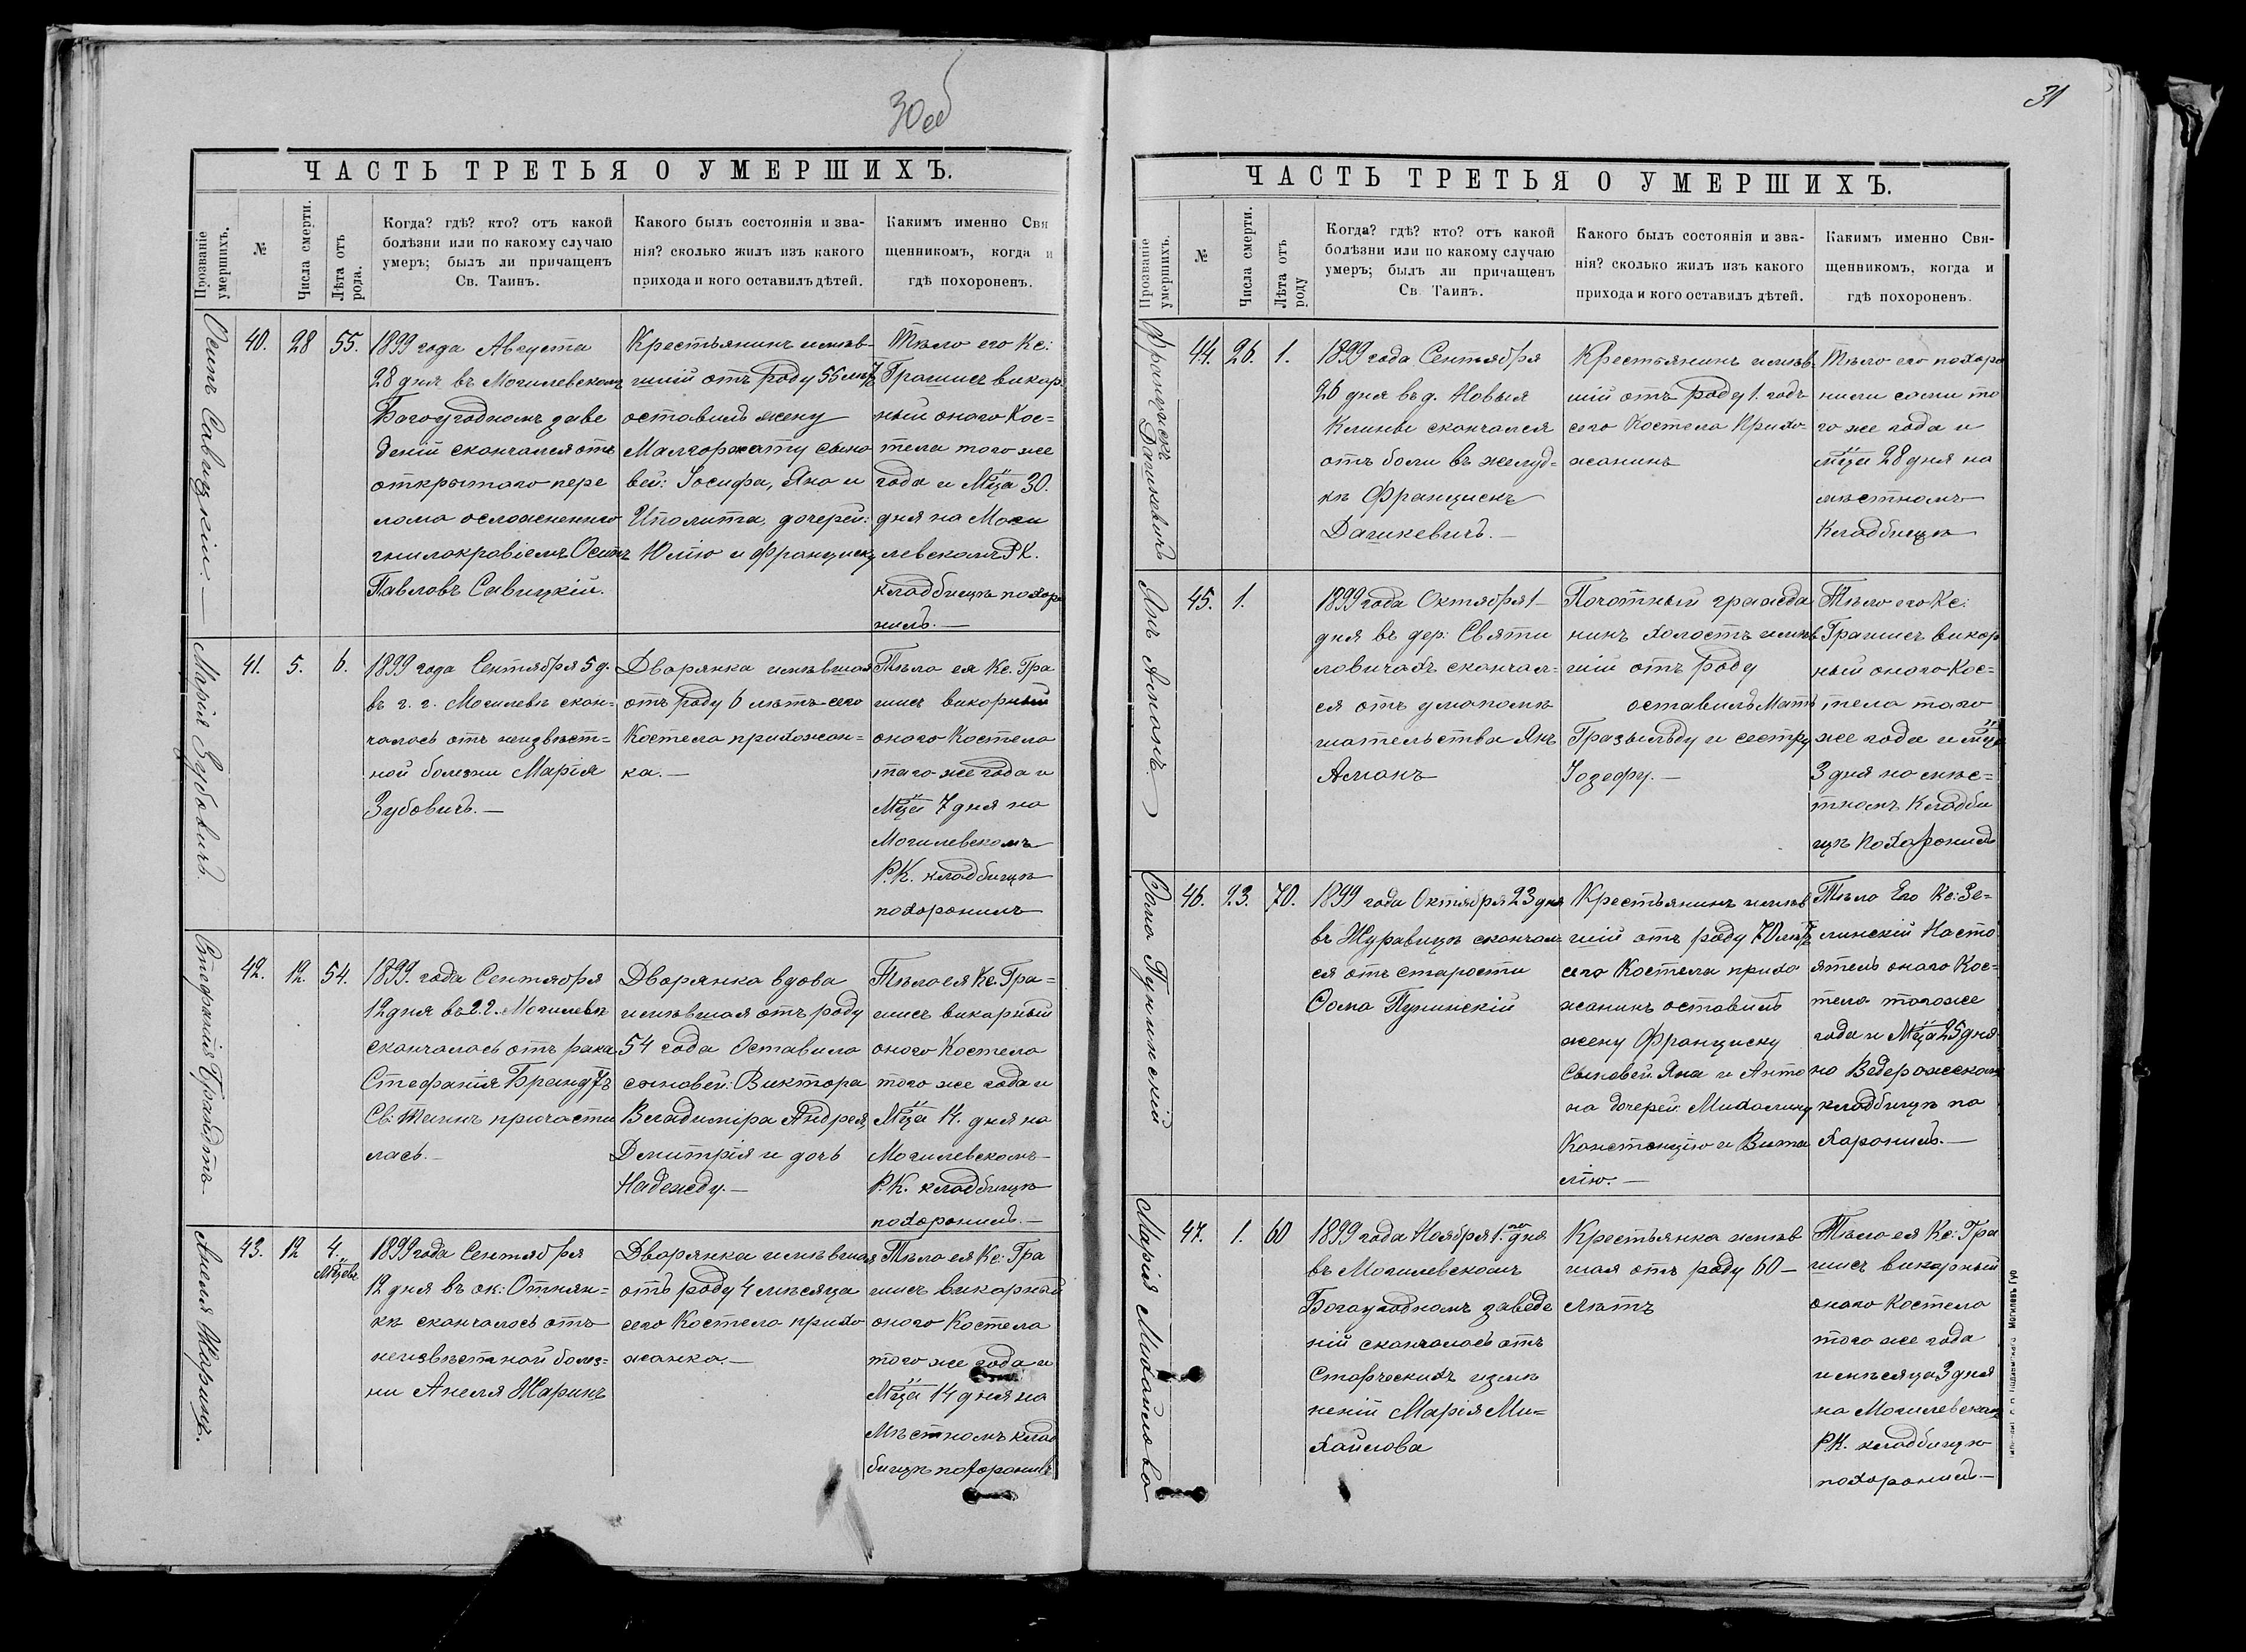 30 об
ЧАСТЬ ТРЕТЬЯ О УМЕРШИХЪ.
Прозваніе умершихъ.
№
Числа смерти.
Лѣта отъ рода.
Когда? гдѣ? кто? отъ какой
болѣзни или по какому случаю
умеръ; былъ ли причащенъ
Св. Таинъ.
Какого былъ состоянія и зва-
нія? сколько жилъ изъ какого
прихода и кого оставилъ дѣтей.
Какимъ именно Свя
щенникомъ, когда и
гдѣ похороненъ.
Осипъ Савицкій.
40.
28
55.
1899 года Августа
28 дня въ Могилевскомъ
Богоугодномъ заве
деніи скончался отъ
открытаго пере
лома осложненнаго
гнилокровіемъ Осипъ
Павловъ Савицкій.
Крестьянинъ имѣв-
шій отъ роду 55 лѣтъ
оставилъ жену
Малгоржату сыно
вей: Іосифа, Яна и
Иполита, дочерей:
Юлію и Франциску
Тѣло его Кс:
Грашисъ викар
ный онаго Кос=
тела того же
года и Мца 30.
дня на Моги
левскомъ Р.К.
кладбищѣ похоро
нилъ.—
Марія Зубовичъ.
41.
5.
6.
1899 года Сентября 5 д.
въ г. г. Могилевѣ скон=
чалась отъ неизвѣст=
ной болезни Марія
Зубовичъ.—
Дворянка имѣвшая
отъ роду 6 лѣтъ сего
Костела прихожан=
ка.—
Тѣло ея Кс. Гра
шисъ викарный
онаго Костела
таго же года и
Мца 7 дня на
Могилевскомъ
Р.К. кладбищѣ
похоронилъ
Стефанія Брандтъ
42.
12.
54.
1899. года Сентября
12 дня въ г. г. Могилевѣ
скончалась отъ рака
Стефанія Брандтъ
Св: Таинъ причасти
лась.—
Дворянка вдова
имѣвшая отъ роду
54 года Оставила
сыновей: Виктора
Владиміра Андрея,
Дмитрія и дочь
Надежду.—
Тѣло ея Кс. Гра=
шисъ викарный
онаго Костела
того же года и
Мца 14. дня на
Могилевскомъ
Р.К. кладбищѣ
похоронилъ.—
Анеля Жаринъ.
43.
12
4. Мцевъ
1899 года Сентября
12 дня въ ок:
кѣ скончалась отъ
неизвѣстной болѣз=
ни Анеля Жаринъ
Дворянка имѣвшая
отъ роду 4 мѣсяца
сего Костела прихо
жанка.—
Тѣло ея Кс: Гра
шисъ викарный
онаго Костела
того же года и
Мца 14 дня на
Мѣстномъ клад
бищѣ похоронилъ
31
ЧАСТЬ ТРЕТЬЯ О УМЕРШИХЪ.
Прозваніе умершихъ.
№
Числа смерти.
Лѣта отъ роду
Когда? гдѣ? кто? отъ какой
болѣзни или по какому случаю
умеръ; былъ ли причащенъ
Св. Таинъ.
Какого былъ состоянія и зва-
нія? сколько жилъ изъ какого
прихода и кого оставилъ дѣтей.
Какимъ именно Свя-
щенникомъ, когда и
гдѣ похороненъ.
Францискъ Дашкевичъ
44.
26.
1.
1899 года Сентября
26 дня въ д. Новыя
Клинви скончался
отъ боли въ желуд=
кѣ Францискъ
Дашкевичъ.—
Крестьянинъ имѣв-
шій отъ роду 1. годъ
сего Костела Прихо-
жанинъ
Тѣло его похоро
нили сами то
го же года и
Мца 28 дня на
мѣстномъ
Кладбищѣ
Янъ Аманъ.
45.
1.
1899 года Октября 1
дня въ дер: Святи
ловичахъ скончал=
ся отъ умопомѣ
шательства Янъ
Аманъ
Почотный гражда
нинъ холостъ имѣв
шій отъ роду
оставилъ Мать
Гразыльду и сестру
Іозефу.—
Тѣло его Кс:
Грашисъ викар
ный онаго Кос=
тела таго
же года и Мца
3 дня на мѣс=
тномъ Кладби
щѣ Похоронилъ
Ѳома Пунинскій
46.
23.
70.
1899 года Октября 23 дня
въ Журавицѣ скончал
ся отъ старости
Ѳома Пунинскій
Крестьянинъ имѣв
шій отъ роду 70 лѣтъ
сего Костела прихо
жанинъ оставилъ
жену Франциску
Сыновей: Яна и Анто
на дочерей: Михалину
Констанцію и Вита
лію.—
Тѣло Его Кс: Зе=
линскій Насто
ятель онаго Кос=
тела того же
года и Мца 25 дня
на
кладбищѣ по
хоронилъ.—
Марія Михайлова
47.
1.
60
1899 года Ноября 1.го дня
въ Могилевскомъ
Богоугодномъ заведе
ній скончалась отъ
Старческихъ измѣ
неній Марія Ми=
хайлова
Крестьянка имѣв
шая отъ роду 60—
лѣтъ
Тѣло ея Кс: Гра
шисъ викарный
онаго Костела
того же года
и мѣсяца 3 дня
на Могилевскомъ
Р.К. кладбищѣ
похоронилъ.—
Могилевъ Губ